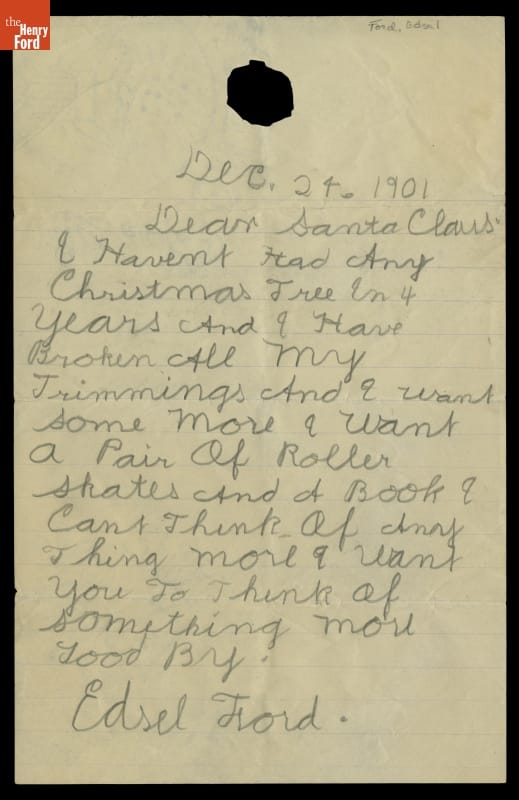 the
Henry
Ford
Ford, Edsel
Dec. 24. 1901
Dear Santa Claus.
I Havent Had Any
Christmas Tree In 4
Years And I Have
Broken All My
Trimmings And I want
some More I Want
A Pair Of Roller
skates And A Book I
Cant Think Of Any
Thing More I Want
You To Think Of
something More
Good By.
Edsel Ford.